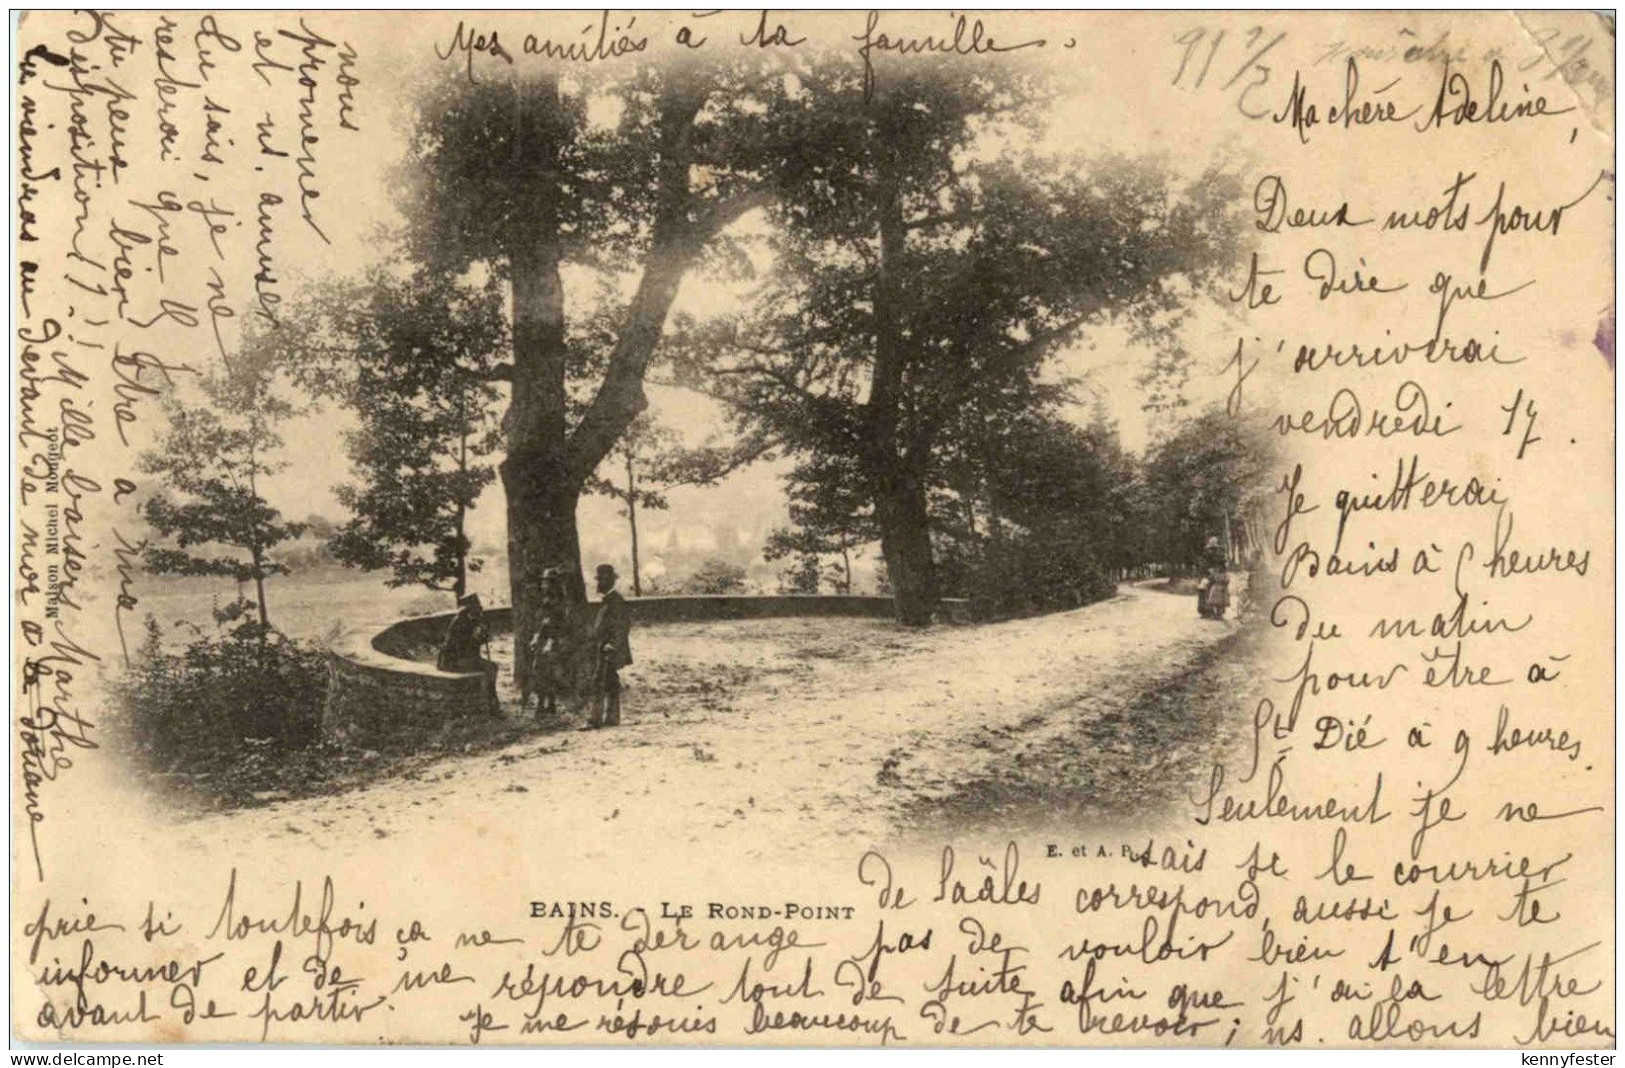 Ma chère Adeline,
Deux mots pour
te dire que
j'arriverai
vendredi 17.
Je quitterai
Bains à 6 heures
du matin
pour être à
St Dié à 9 heures.
Seulement je ne
sais si le courrier
de Saâles correspond, aussi je te
prie si toutefois ça ne te dérange pas de vouloir bien t'en
informer et de me répondre tout de suite afin que j'ai la lettre
avant de partir. Je me réjouis beaucoup de te revoir; ns. allons bien
nous
promener
et ns. amuser
Tu sais, je ne
resterai que
tu peux bien être à ma
disposition!! Mille baisers Marthe
Tu viendras au devant de moi à la douane
Mes amitiés à ta famille.
91 1/2
Maison Michel Mougeot
E. et A. P.
BAINS. - LE ROND-POINT
kennyfester
delcampe.net